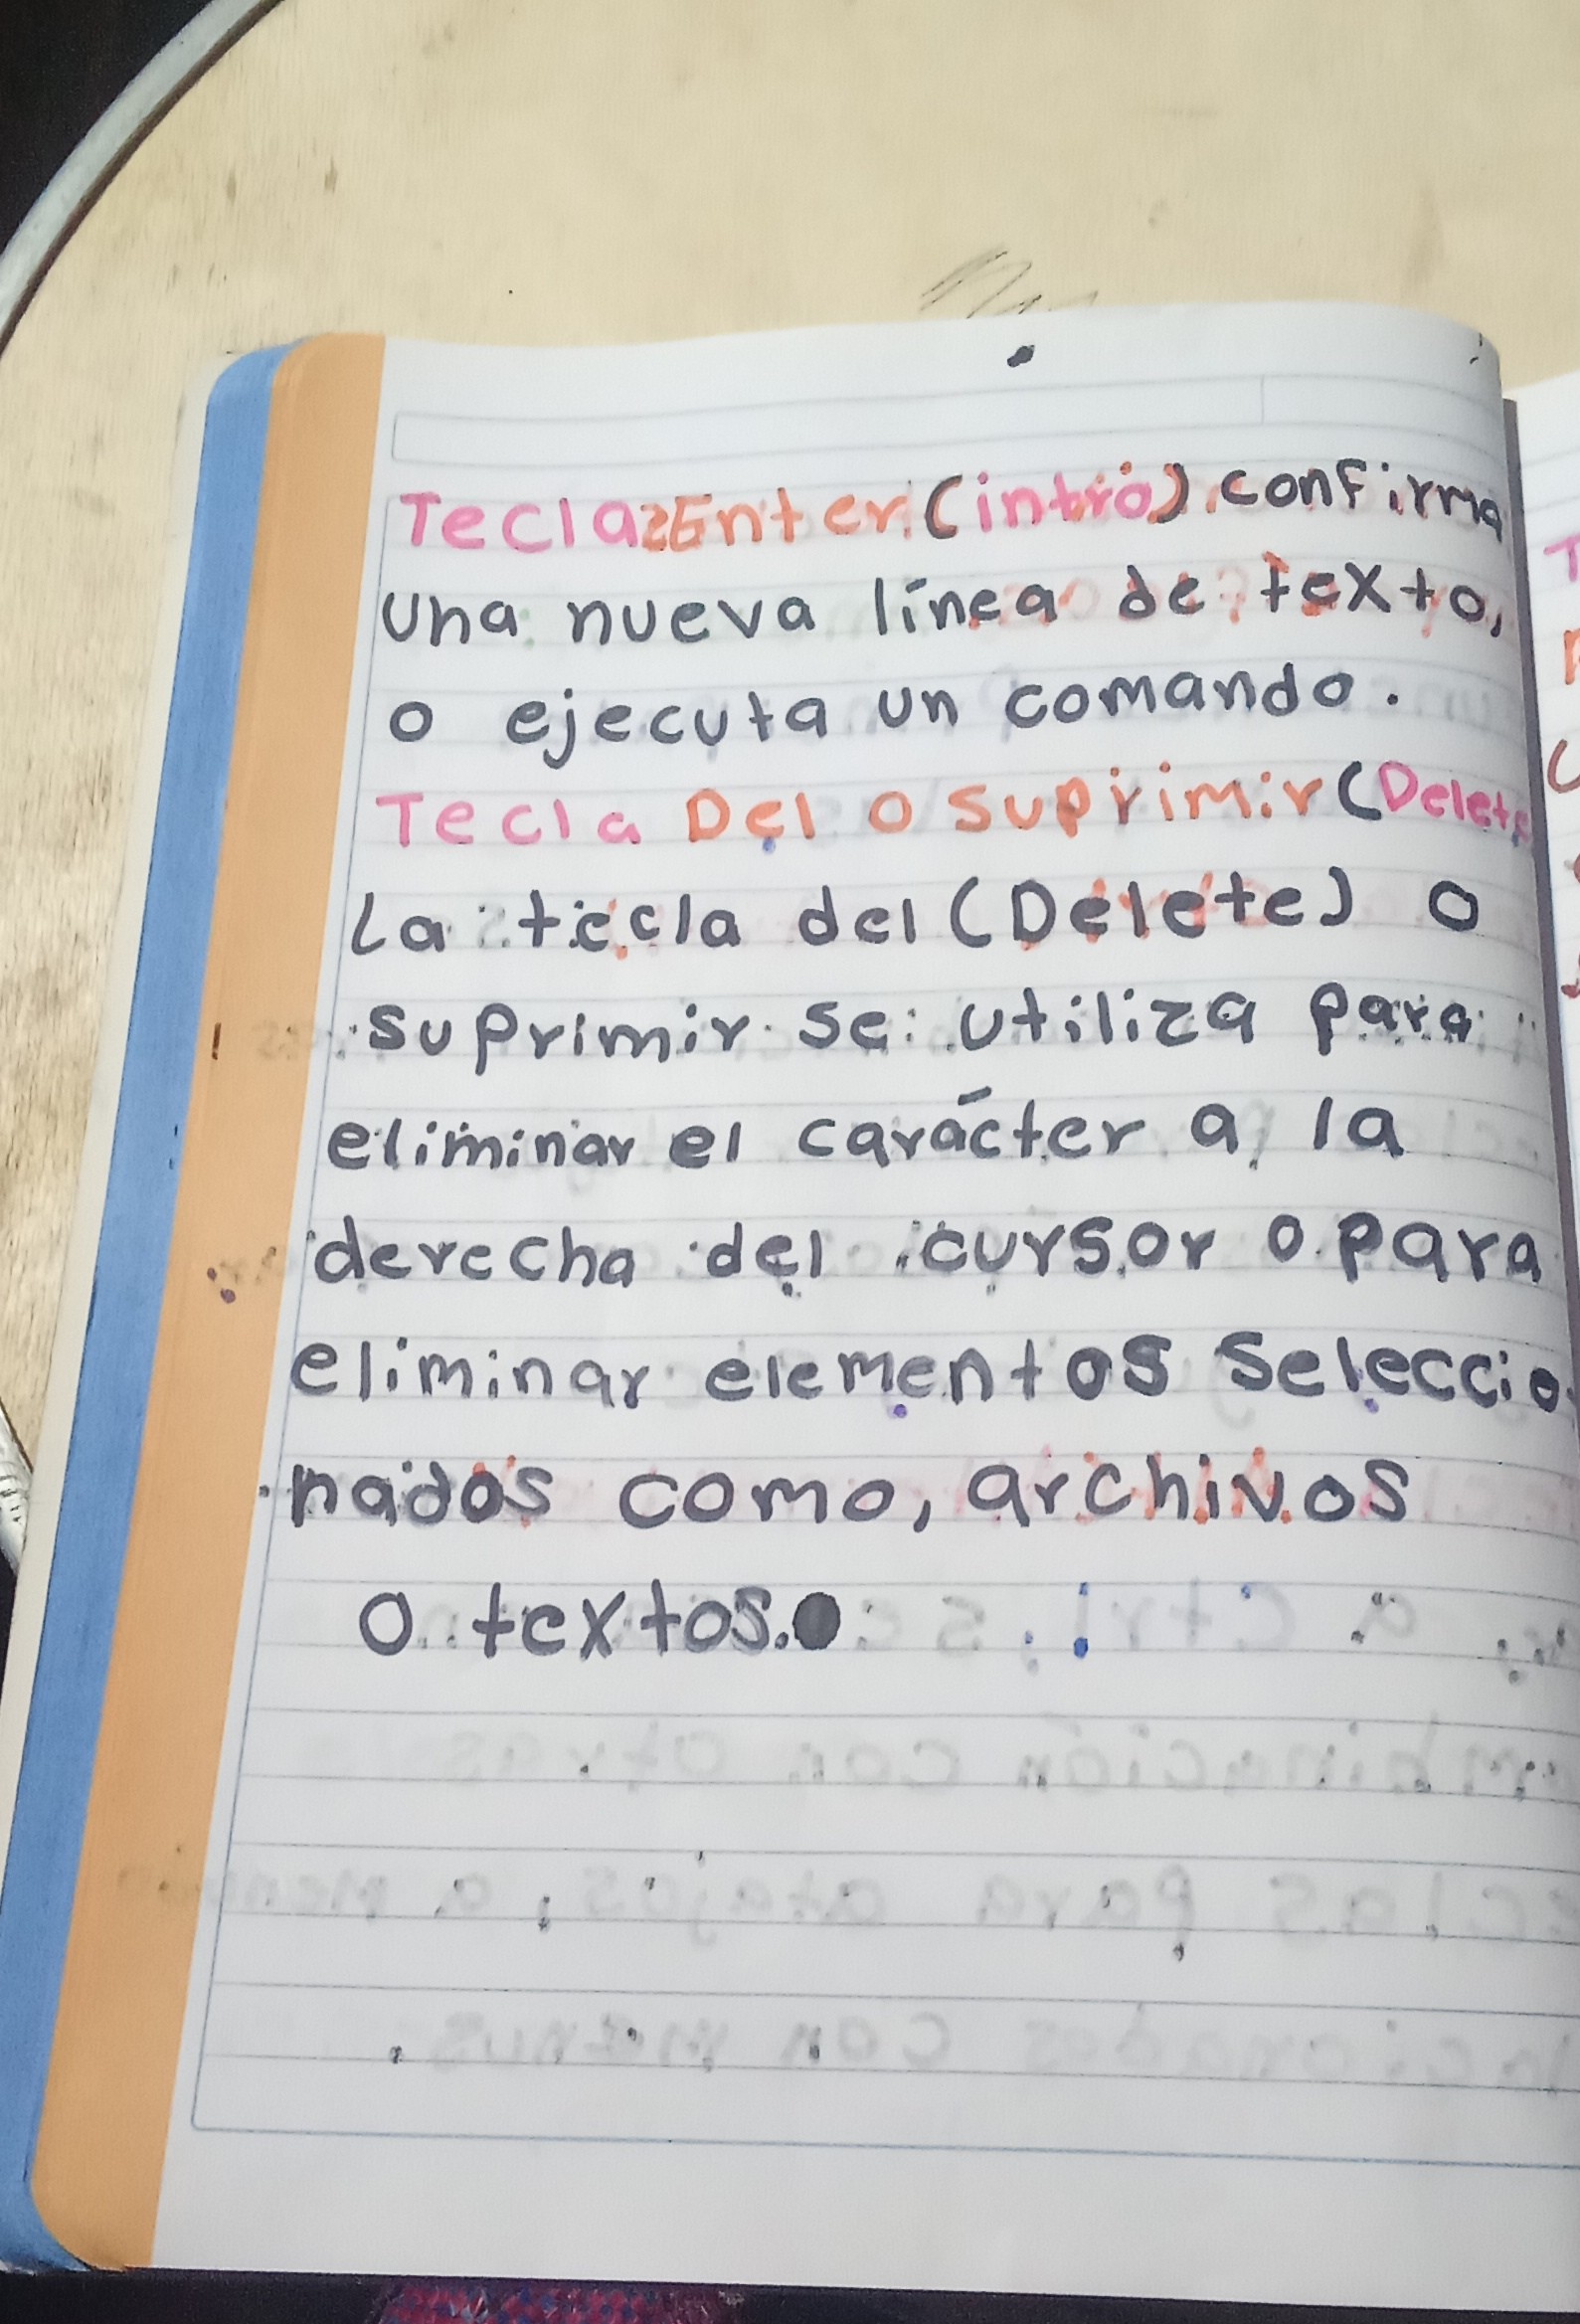 Tecla Enter (intro) confirma
una nueva línea de texto,
o ejecuta un comando.
Tecla Del o suprimir (Delete
La tecla del (Delete) o
suprimir se utiliza para
eliminar el carácter a la
derecha del cursor o para
eliminar elementos seleccio
nados como, archivos
o textos.